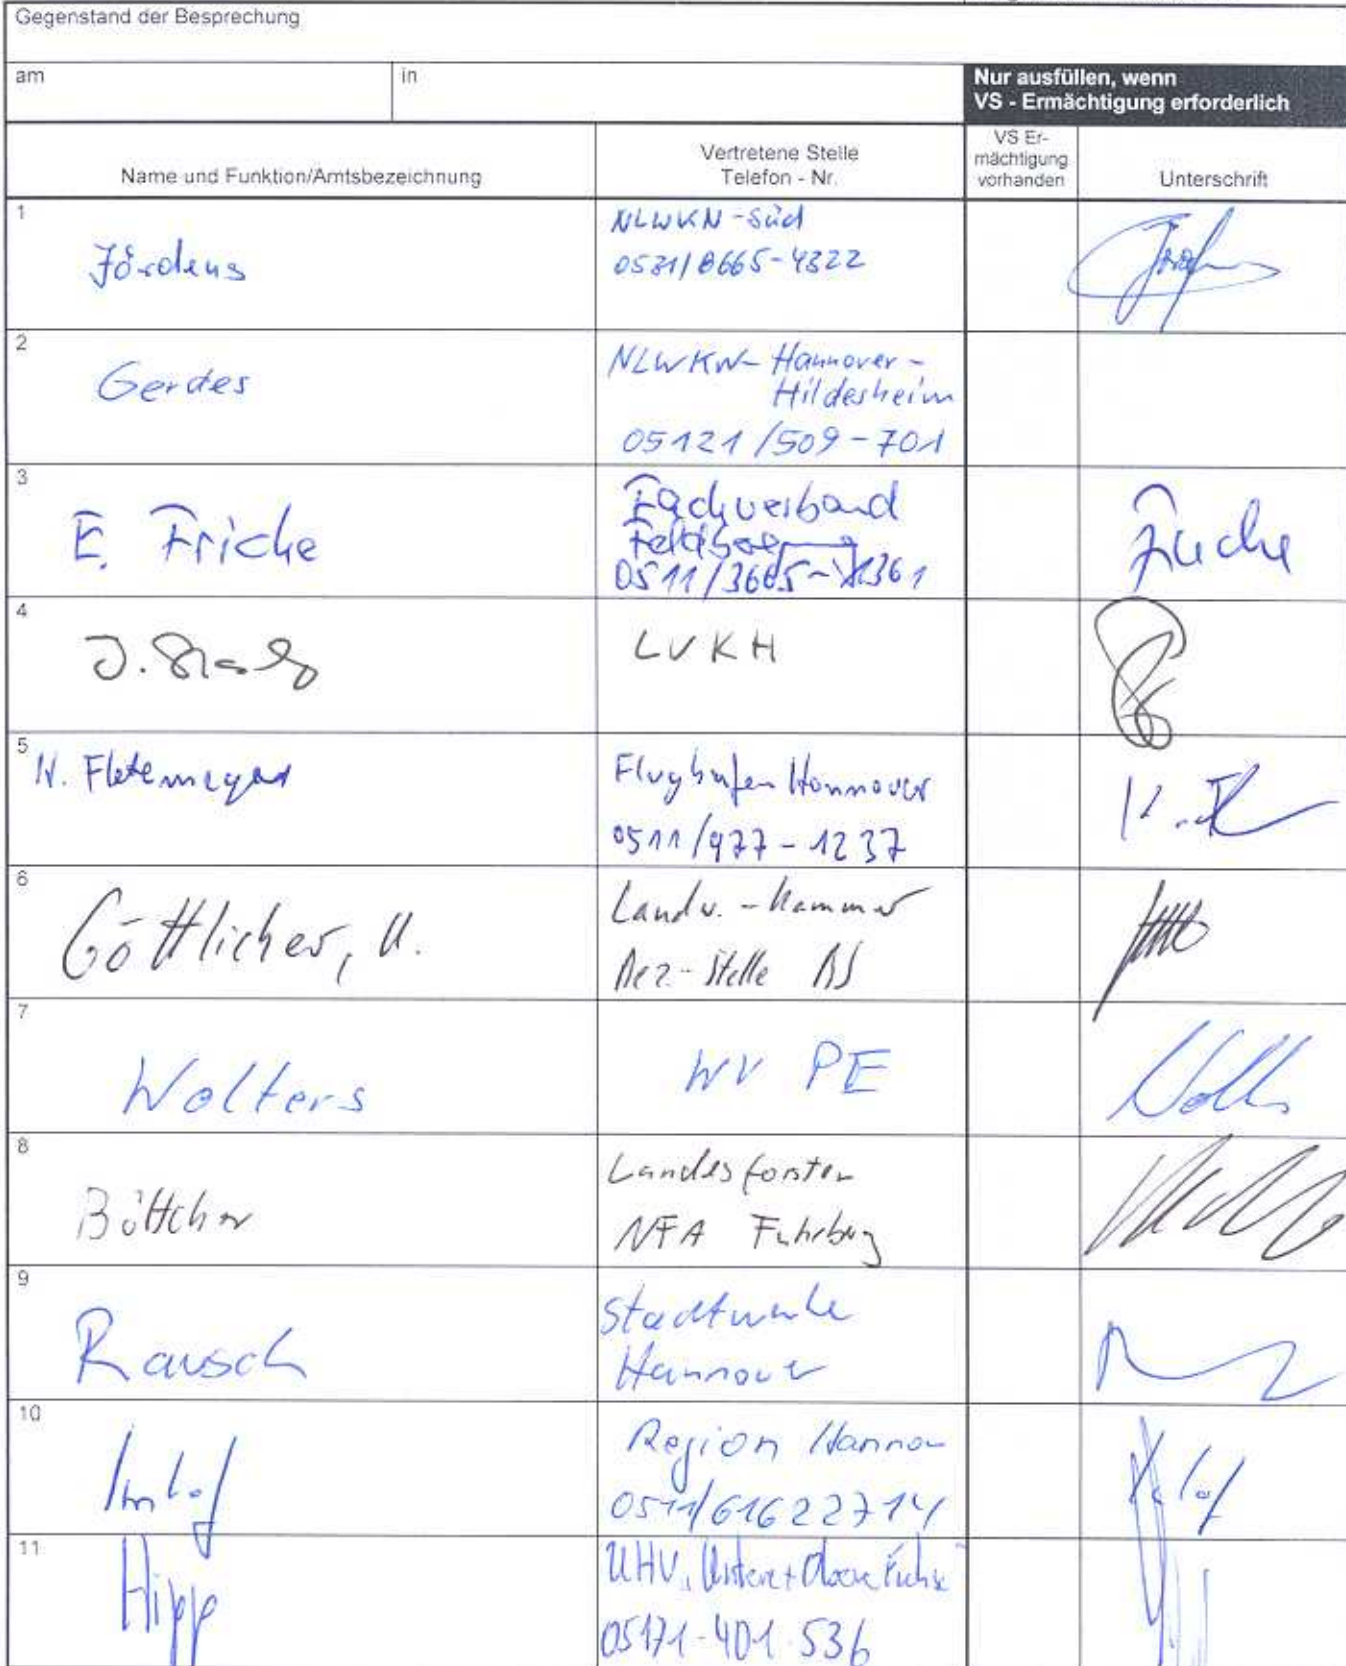 Gegenstand der Besprechung
am
in
Nur ausfüllen, wenn
VS - Ermächtigung erforderlich
Name und Funktion/Amtsbezeichnung
Vertretene Stelle
Telefon - Nr.
VS Er-
mächtigung
vorhanden
Unterschrift
1
Jördens
NLWKN-Süd
0531/8665-4322
2
Gerdes
NLWKN- Hannover -
Hildesheim
05121/509-701
3
E. Fricke
Fachverband
0511/3665-
Fricke
4
J.
LVKH
5
H. Flatemeyer
Flughafen Hannover
0511/977-1237
6
Göttlicher, U.
Landw.-Kammer
Bez-Stelle BS
7
Wolters
WV PE
8
Böttcher
Landesforsten
NFA Fuhrberg
9
Rausch
Stadtwerke
Hannover
10
Imhof
Region Hannov
0511/61622714
11
Hipp
UHV, Untere + Obere Fuhse
05171-401-536